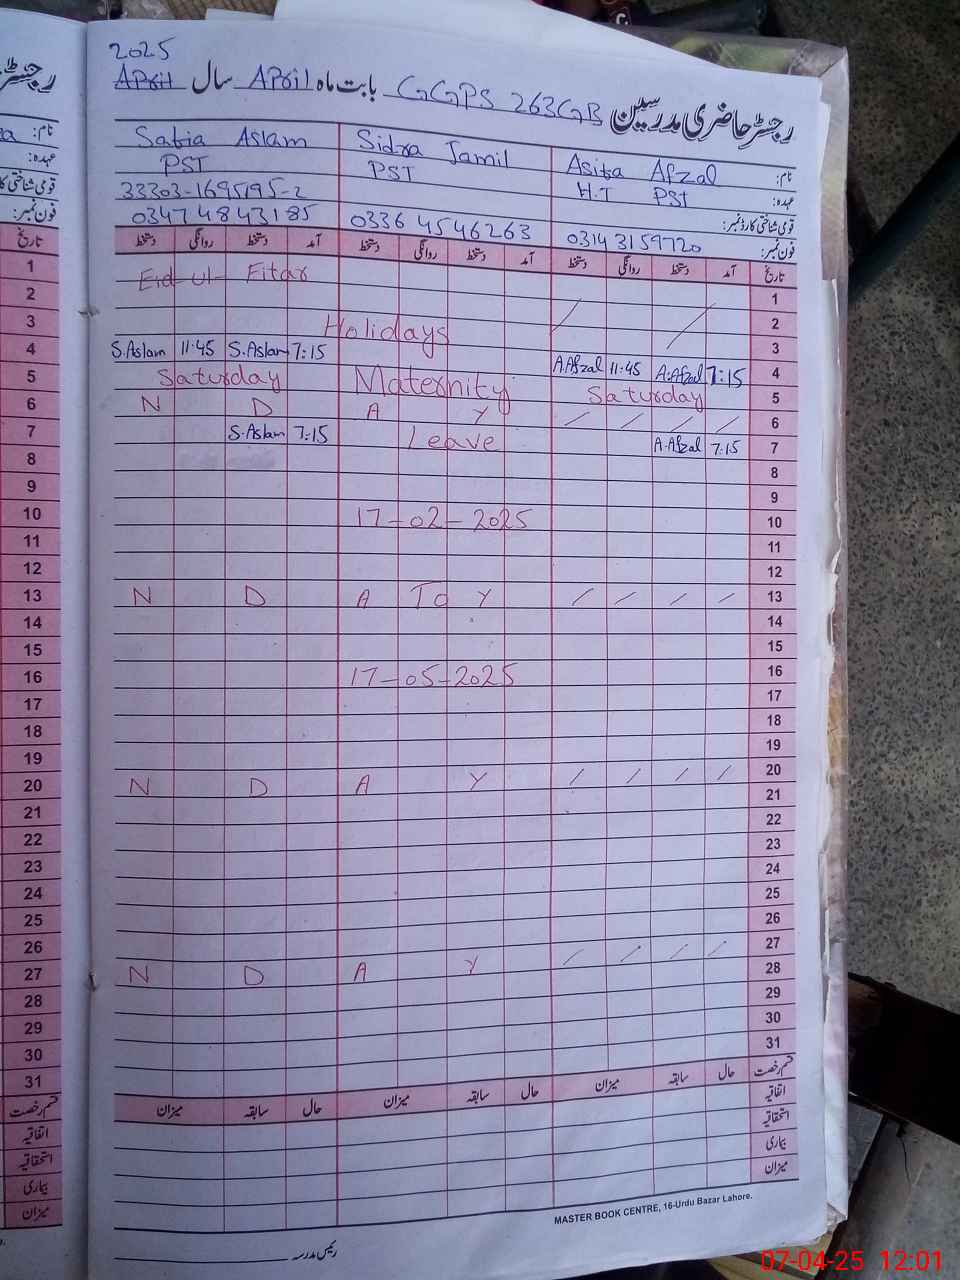 2025
رجسٹر حاضری مدرسین GGPS 263GB بابت ماہ April سال April
نام: Asifa Afzal Sidra Jamil Safia Aslam
عہدہ: H.T PST PST PST
قومی شناختی کارڈ نمبر: 33303-1695195-2
فون نمبر: 03143159720 0336 4546263 0347 4843185
تاریخ آمد دستخط روانگی دستخط آمد دستخط روانگی دستخط آمد دستخط روانگی دستخط تاریخ
1 Eid ul- Fitar 1
2 2
3 Holidays 3
4 7:15 A.Afzal 11:45 A.Afzal 7:15 S.Aslam 11:45 S.Aslam 4
5 Saturday Maternity Saturday 5
6 / / / / A Y N D 6
7 7:15 A.Afzal Leave 7:15 S.Aslam 7
8 8
9 9
10 17-02-2025 10
11 11
12 12
13 / / / / A To Y N D 13
14 14
15 15
16 17-05-2025 16
17 17
18 18
19 19
20 / / / / A Y N D 20
21 21
22 22
23 23
24 24
25 25
26 26
27 / / / / A Y N D 27
28 28
29 29
30 30
31 31
قسم رخصت حال سابقہ میزان حال سابقہ میزان حال سابقہ میزان قسم رخصت
اتفاقیہ اتفاقیہ
استحقاقیہ استحقاقیہ
بیماری بیماری
میزان میزان
MASTER BOOK CENTRE, 16-Urdu Bazar Lahore.
رئیس مدرسہ
07-04-25 12:01